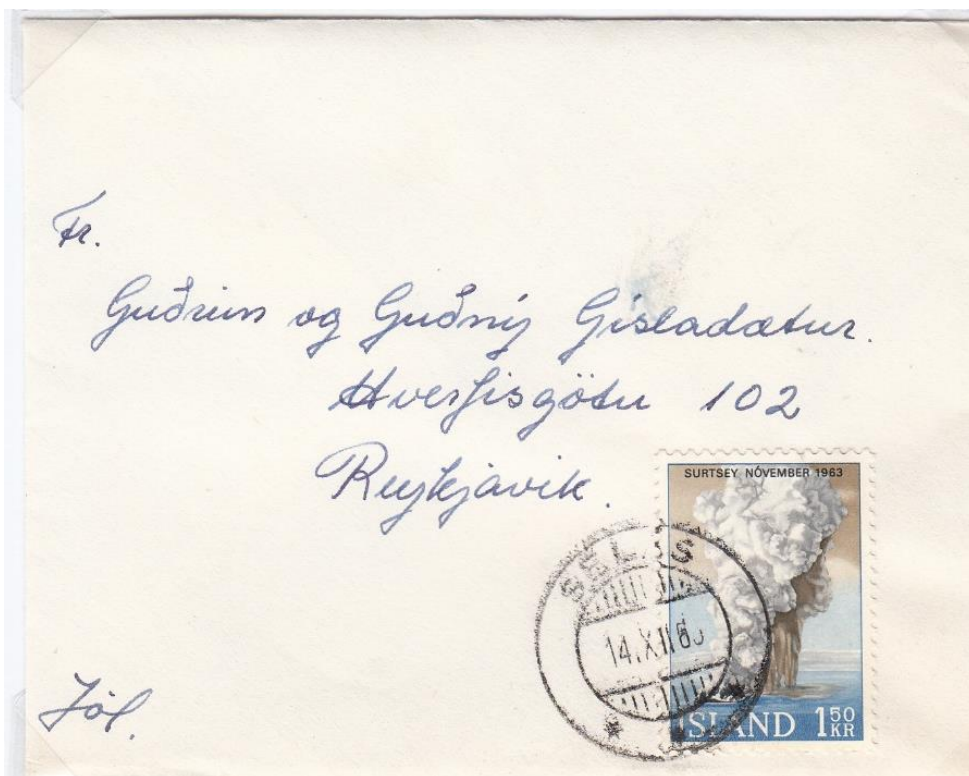 Fr.
Guðrún og Guðný Gísladætur.
Hverfisgötu 102
Reykjavík.
SURTSEY NÓVEMBER 1963
14.XII.6
ÍSLAND 1 50 KR
Jól.